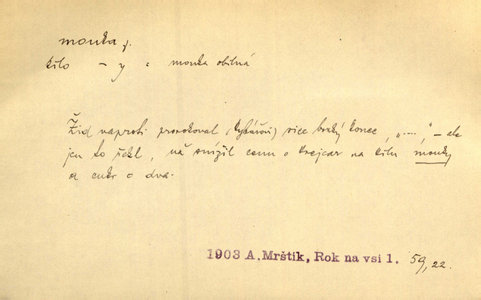 mouka f.
kilo – y : mouka obilná
Žid naproti prorokoval (Rybářovi) více brzký konec, „....“, – ale
jen to řekl, už snížil cenu o krejcar na kilu mouky
a cukr o dva.
1903 A. Mrštík, Rok na vsi 1. 59,22.